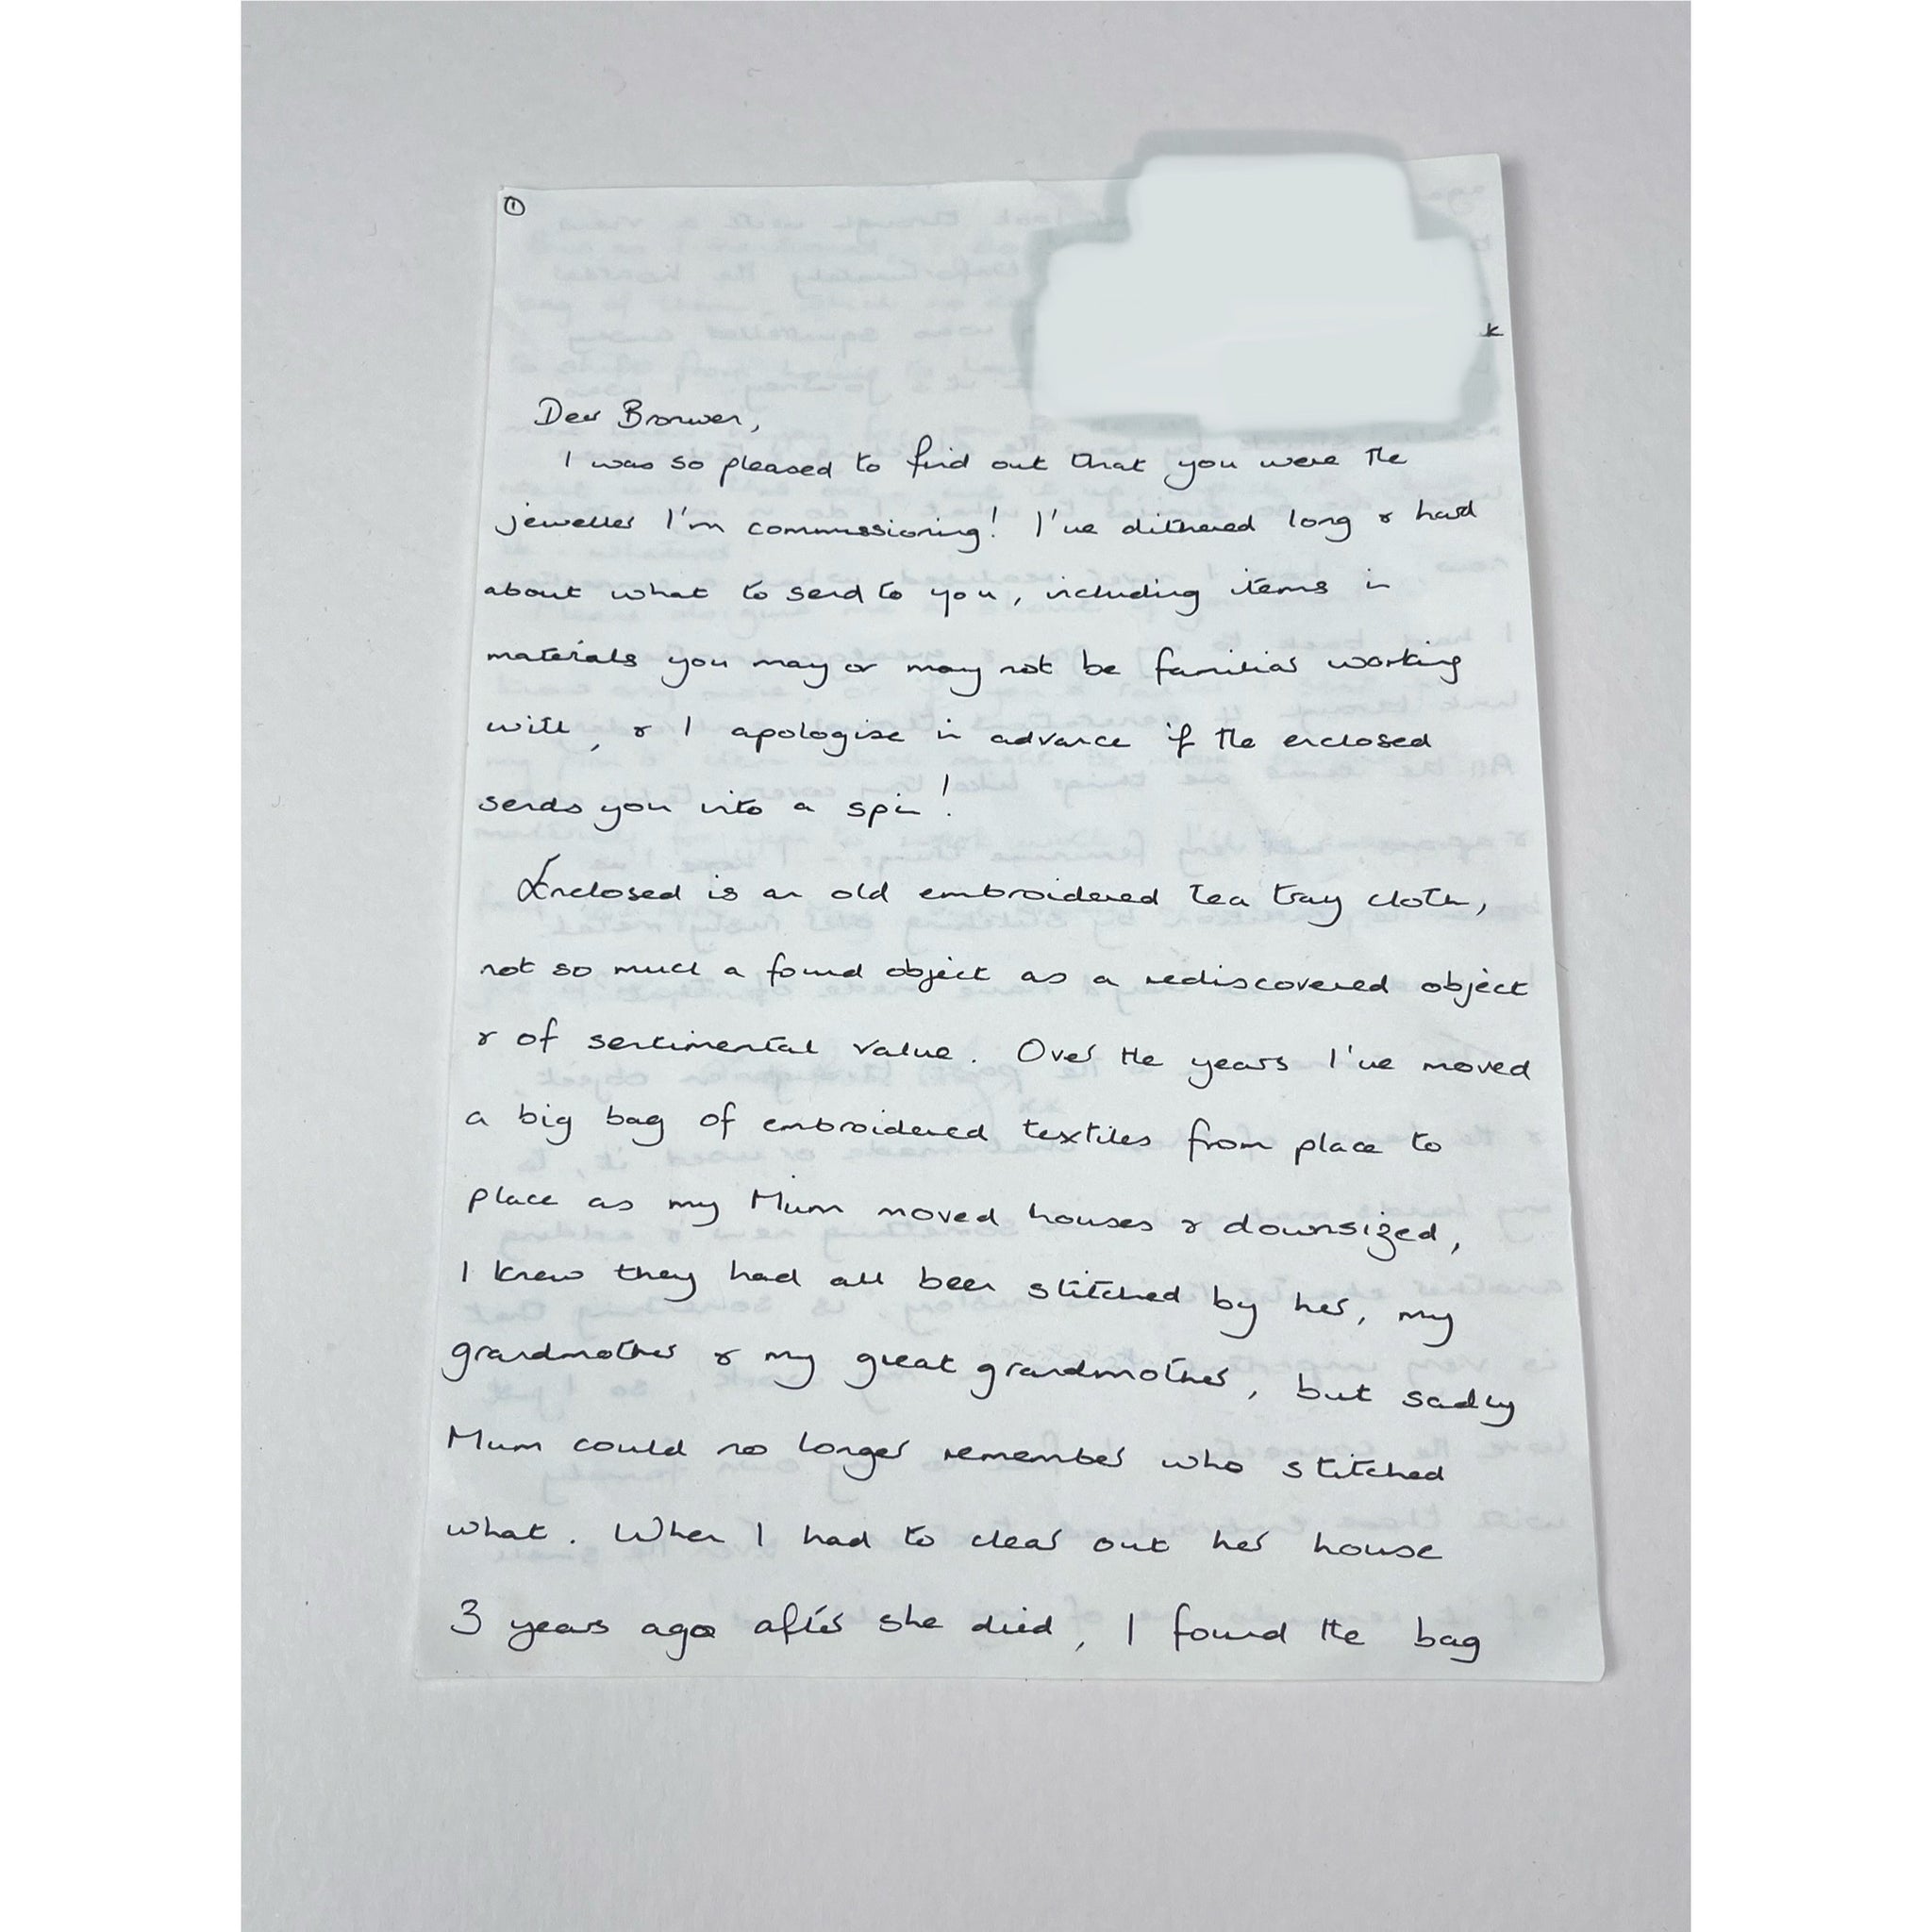 ①
k
Dear Bronwen,
I was so pleased to find out that you were the
jeweller I'm commissioning! I've dithered long & hard
about what to send to you, including items in
materials you may or may not be familiar working
with, & I apologise in advance if the enclosed
sends you into a spin!
Enclosed is an old embroidered tea tray cloth,
not so much a found object as a rediscovered object
& of sentimental value. Over the years I've moved
a big bag of embroidered textiles from place to
place as my Mum moved houses & downsized,
I knew they had all been stitched by her, my
grandmother & my great grandmother, but sadly
Mum could no longer remember who stitched
what. When I had to clear out her house
3 years ago after she died, I found the bag